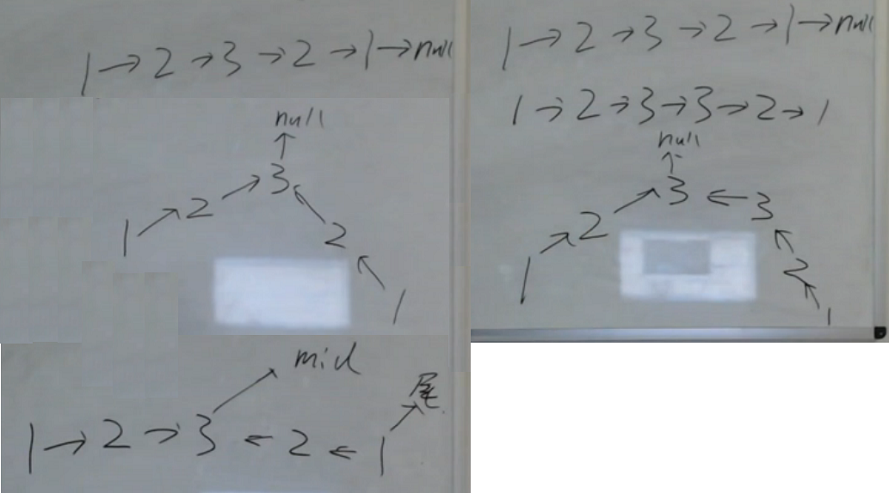 1→2→3→2→1→null
null
↑
1→2→3←2←1
mid
尾
1→2→3←2←1
1→2→3→2→1→null
1→2→3→3→2→1
null
↑
1→2→3←3←2←1